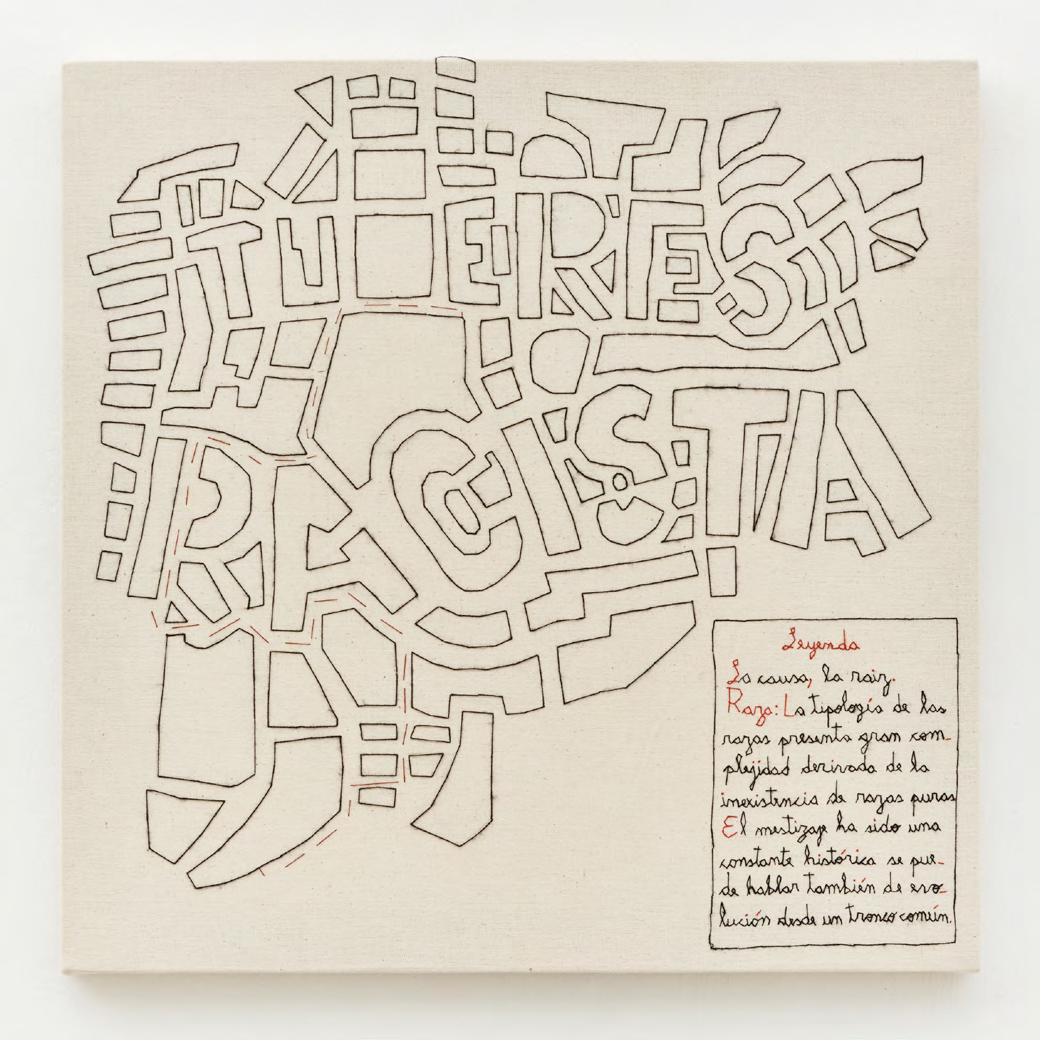 TU ERES
RACISTA
Leyenda
La causa, la raiz.
Raza: La tipología de las
razas presenta gran com-
plejidad derivada de la
inexistencia de razas puras
El mestizaje ha sido una
constante histórica se pue-
de hablar también de evo-
lución desde un tronco común.